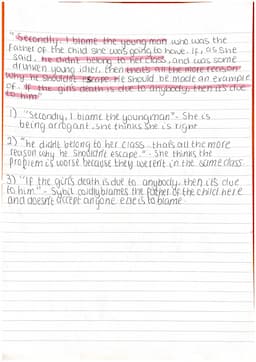 "Secondly, I blame the young man who was the
father of the child she was going to have. If, as she
said, he didn't belong to her class, and was some
drunken young idler, then that's all the more reason
why he shouldn't escape. He should be made an example
of. If the girl's death is due to anybody, then it's due
to him"
1) "Secondly, I blame the young man" - She is
being arrogant, she thinks she is right
2) "he didn't belong to her class.. that's all the more
reason why he shouldn't escape." - She thinks the
problem is worse because they weren't in the same class.
3) "If the girl's death is due to anybody, then it's due
to him" - Sybil coldly blames the father of the child here
and doesn't accept anyone else is to blame